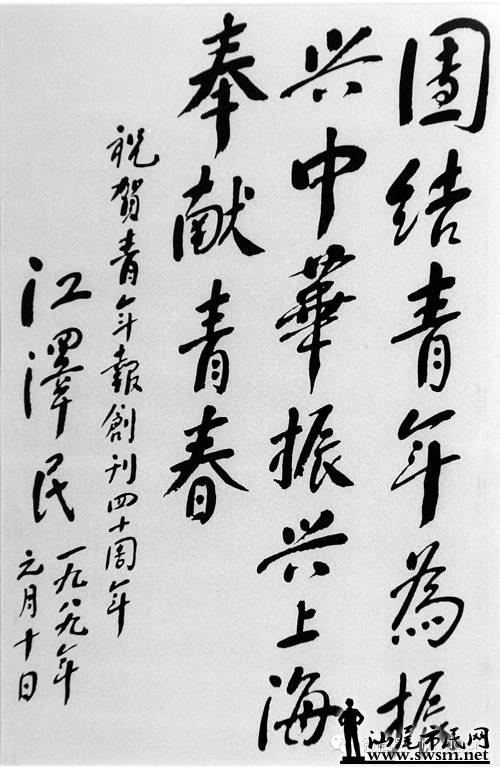 團结青年為振
兴中華振兴上海
奉献青春
祝贺青年報創刊四十周年
江澤民
一九八九年
元月十日
汕尾市民网
www.swsm.net